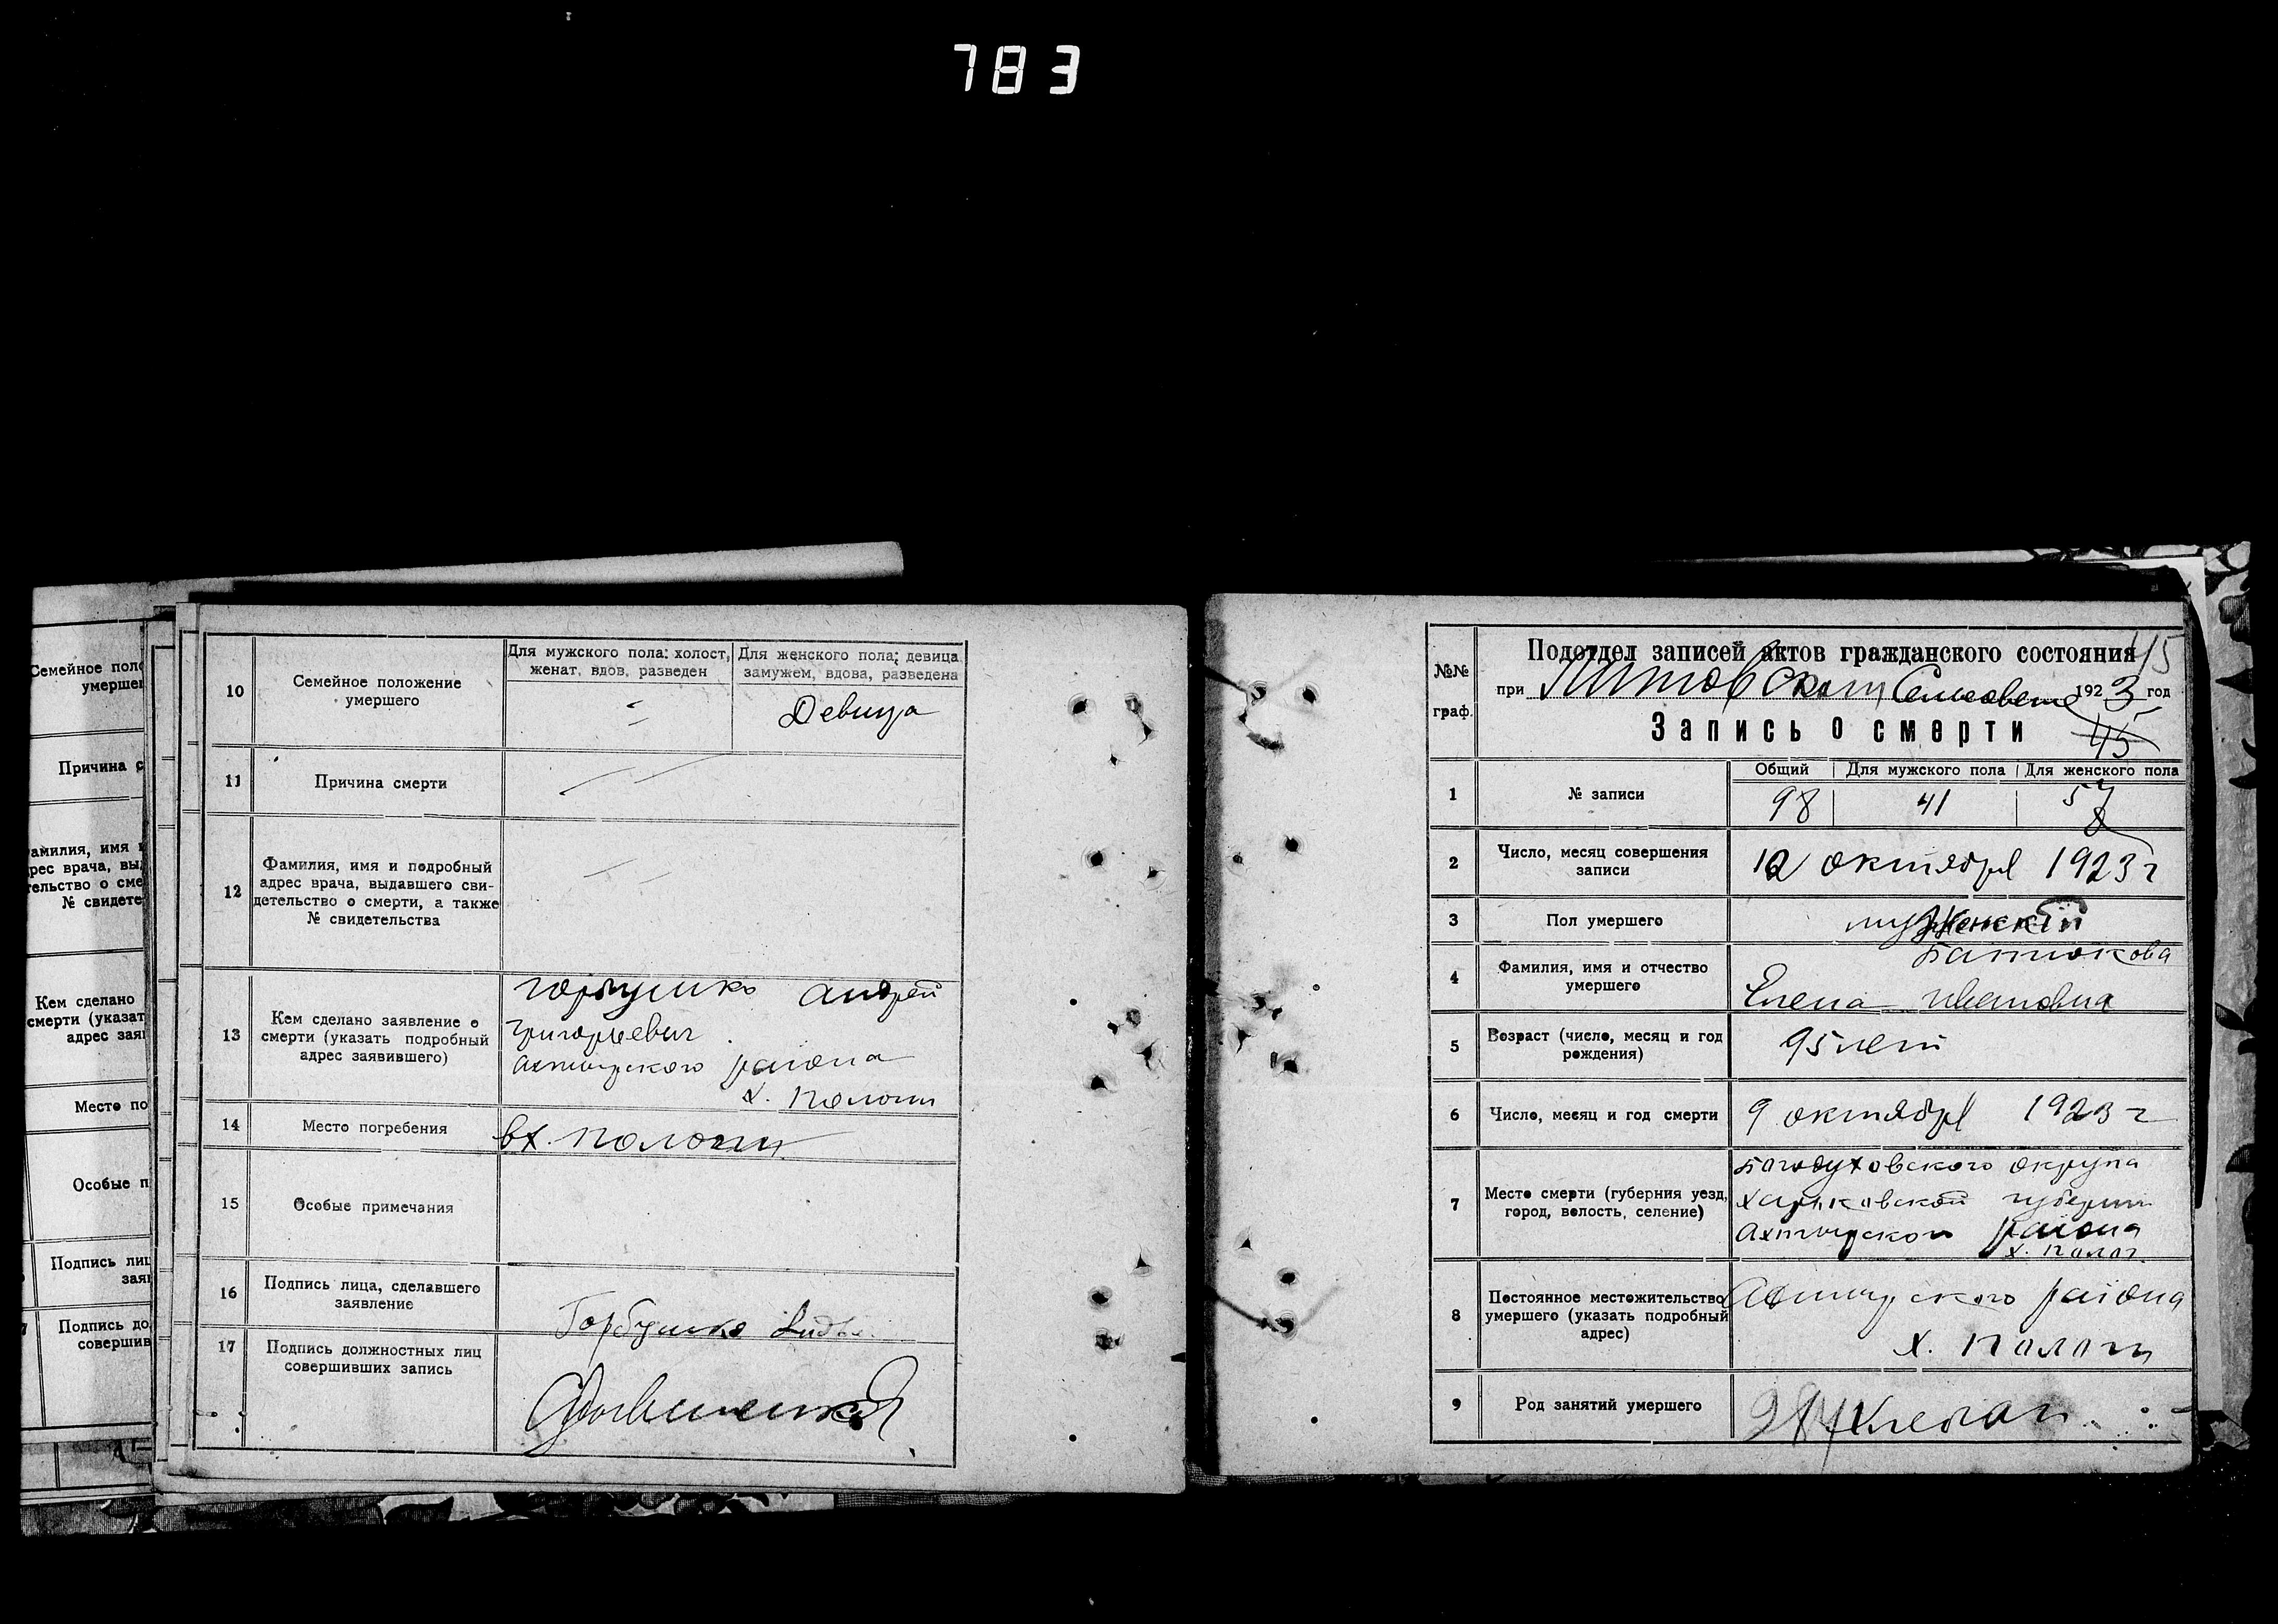 783
Семейное поло
умершег
Причина с
амилия, имя и
рес врача, выд
тельство о сме
№ свидете
Кем сделано
смерти (указат
адрес зая
Место по
Особые п
Подпись лиц
зая
Подпись до
совершив
10
Семейное положение
умершего
Для мужского пола: холост,
женат, вдов, разведен
Для женского пола: девица
замужем, вдова, разведена
Девица
11
Причина смерти
12
Фамилия, имя и подробный
адрес врача, выдавшего сви-
детельство о смерти, а также
№ свидетельства
13
Кем сделано заявление о
смерти (указать подробный
адрес заявившего)
Горбушко Андрей
Григорьевич
Ахтырского района
х. Пологи
14
Место погребения
в х. Пологи
15
Особые примечания
16
Подпись лица, сделавшего
заявление
Горбушко
17
Подпись должностных лиц
совершивших запись
№№
граф.
Подотдел записей актов гражданского состояния
при Сельсовете 1923 год
45
Запись о смерти
1
№ записи
Общий
Для мужского пола
Для женского пола
98
41
57
2
Число, месяц совершения
записи
12 октября 1923 г
3
Пол умершего
женский
4
Фамилия, имя и отчество
умершего
Батюкова
Елена Ивановна
5
Возраст (число, месяц и год
рождения)
95 лет
6
Число, месяц и год смерти
9 октября 1923 г
7
Место смерти (губерния уезд,
город, волость, селение)
Богодуховского округа
Харьковской губернии
Ахтырского района
х. Полог
8
Постоянное местожительство
умершего (указать подробный
адрес)
Ахтырского района
х. Пологи
9
Род занятий умершего